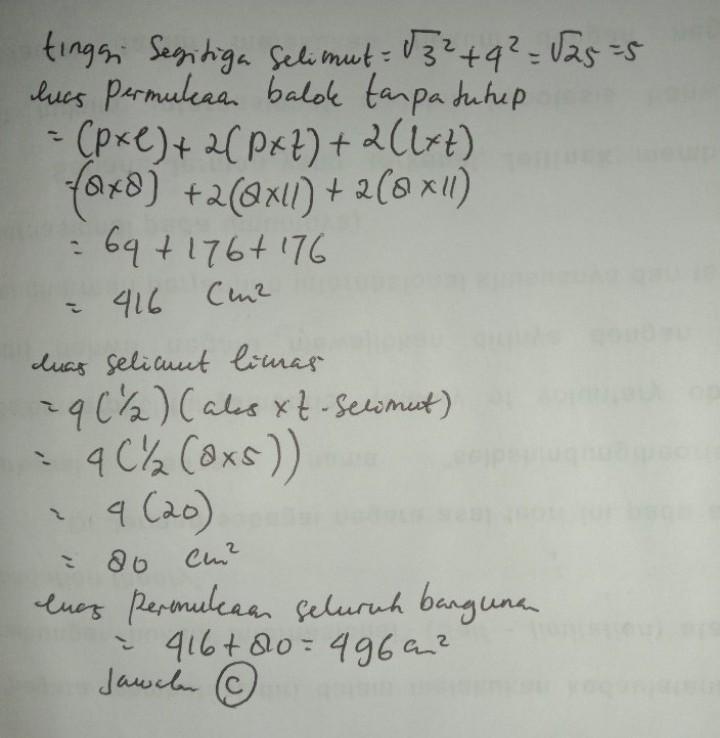 tinggi segitiga selimut = √3² + 4² = √25 = 5
luas permukaan balok tanpa tutup
= (p×l) + 2(p×t) + 2(l×t)
= (8×8) + 2(8×11) + 2(8×11)
= 64 + 176 + 176
= 416 cm²
luas selimut limas
= 4(1/2)(alas × t.selimut)
= 4(1/2(8×5))
= 4(20)
= 80 cm²
luas permukaan seluruh bangunan
= 416 + 80 = 496 cm²
Jawaban C